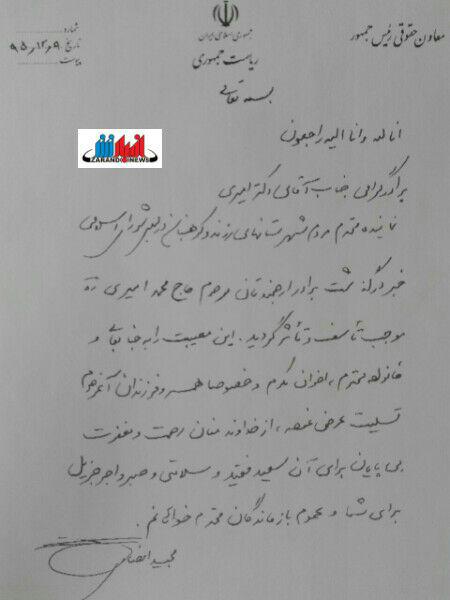 جمهوری اسلامی ایران
ریاست جمهوری
معاون حقوقی رئیس جمهور
شماره
تاریخ ۹۵/۱۲/۰۹
پیوست
بسمه تعالی
انا لله و انا الیه راجعون
ZARANDNEWS
برادر گرامی جناب آقای دکتر امیری
نماینده محترم مردم شهرستانهای زرند و کوهبنان در مجلس شورای اسلامی
خبر درگذشت برادر ارجمندتان مرحوم حاج محمد امیری ره
موجب تأسف و تأثر گردید. این مصیبت را به جنابعالی و
خانواده محترم، اخوان مکرم و خصوصا همسر و فرزندان آنمرحوم
تسلیت عرض نموده، از خداوند منان رحمت و مغفرت
بی پایان برای آن سعید فقید و سلامتی و صبر و اجر جزیل
برای شما و عموم بازماندگان محترم خواهانم.
مجید انصاری